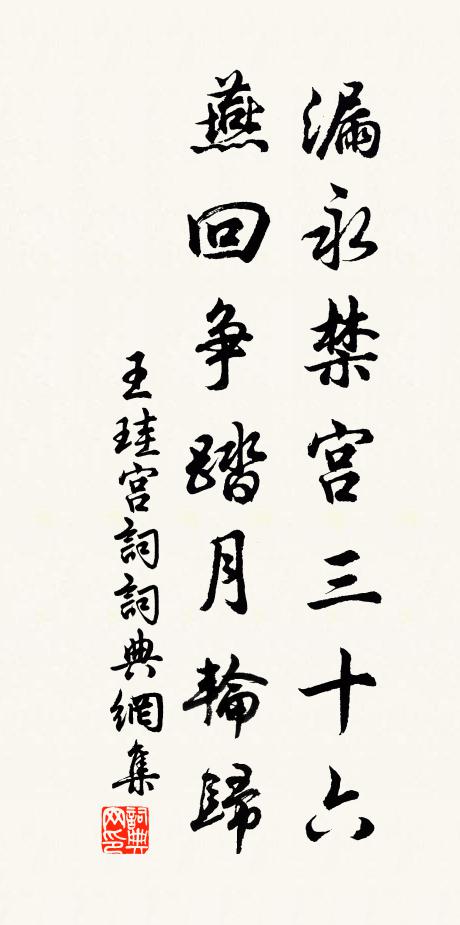 漏永禁宫三十六
燕回争踏月輪歸
王珪宫詞詞典網集
詞典网印